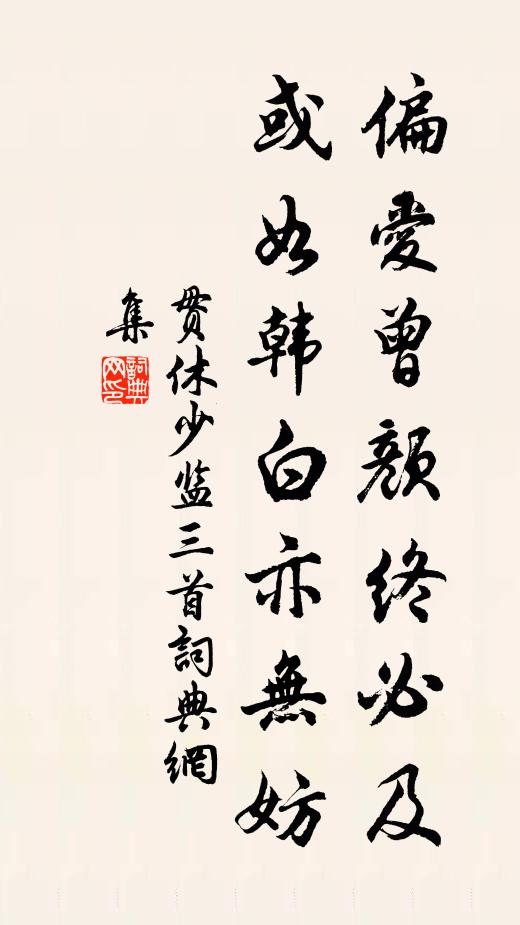 偏愛曾顏終必及
或如韓白亦無妨
貫休少监三首詞典網
集
詞典
网印